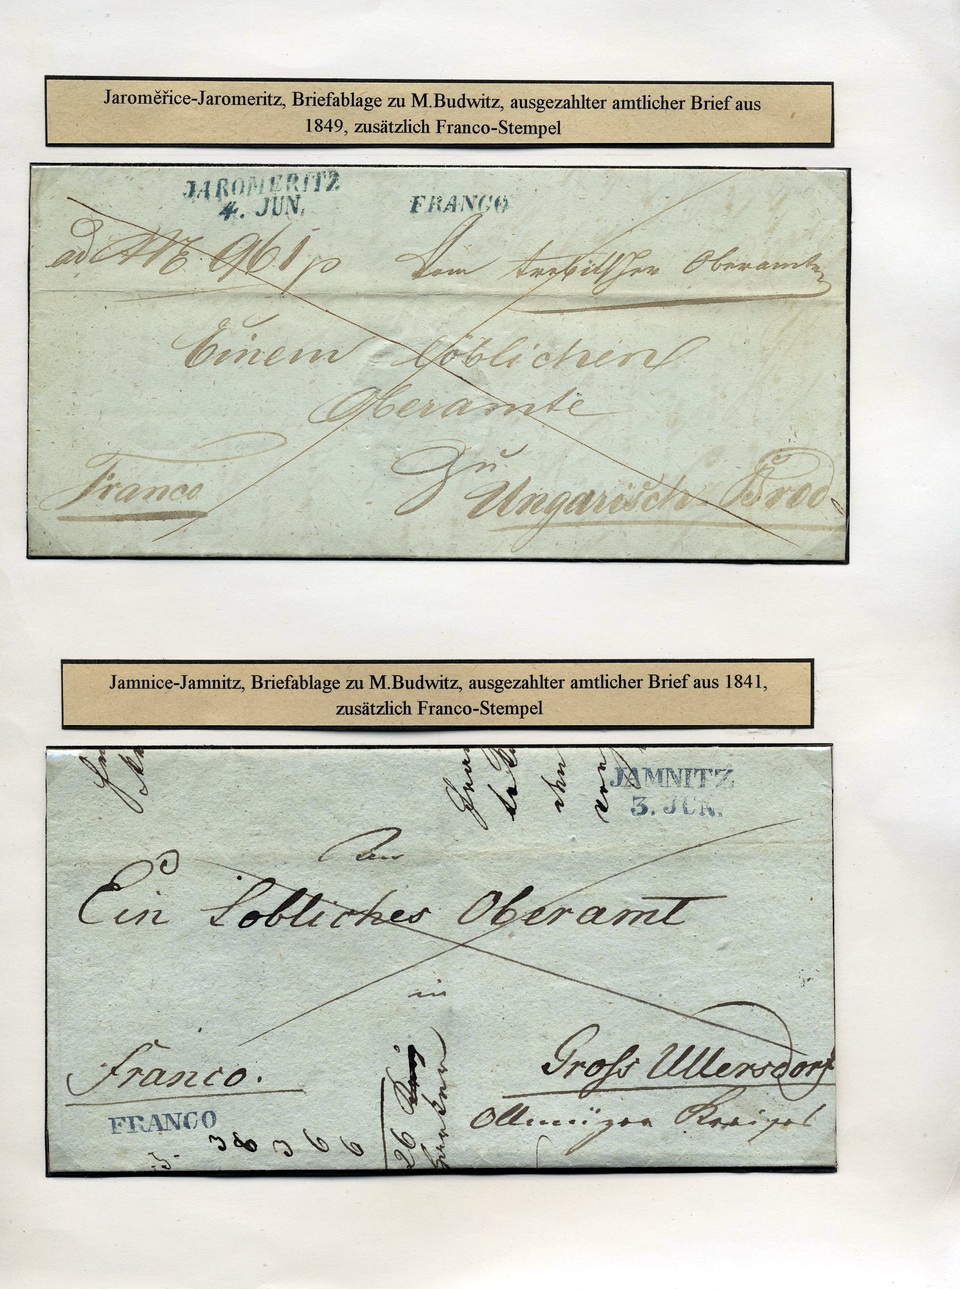 Jaroměřice-Jaromeritz, Briefablage zu M.Budwitz, ausgezahlter amtlicher Brief aus
1849, zusätzlich Franco-Stempel
JAROMERITZ
4. JUN.
FRANCO
ad 961
Vom trebitscher Oberamte
Einem löblichen
Oberamte
Zu
Franco
Ungarisch Brod
Jamnice-Jamnitz, Briefablage zu M.Budwitz, ausgezahlter amtlicher Brief aus 1841,
zusätzlich Franco-Stempel
JAMNITZ
3. JUN.
An
Ein Lobliches Oberamt
in
Franco.
Gross Ullersdorf
Ollmüzer Kreises
FRANCO
38366
26